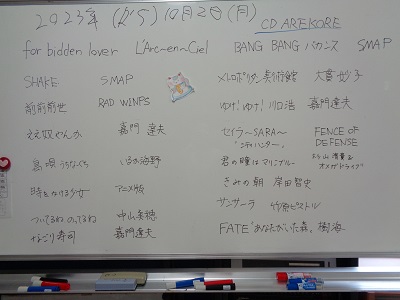 2023年(からう)10月2日(月)
CD AREKORE
forbidden lover L'Arc~en~Ciel BANG BANG バカンス SMAP
SHAKE SMAP
メトロポリタン美術館 大貫妙子
前前前世 RAD WINPS
ゆけ!ゆけ!川口浩 嘉門達夫
ええ奴やんか 嘉門達夫
セイラ~SARA~ FENCE OF DEFENSE
島唄 うちなーぐち いるか海野
君の瞳はマリンブルー 杉山清貴& オメガドライブ
時をかける少女 アニメ版
きみの朝 岸田智史
ついてるねのってるね 中山美穂
サンサーラ 竹原ピストル
なごり寿司 嘉門達夫
FATE「あなたがいた森」樹海